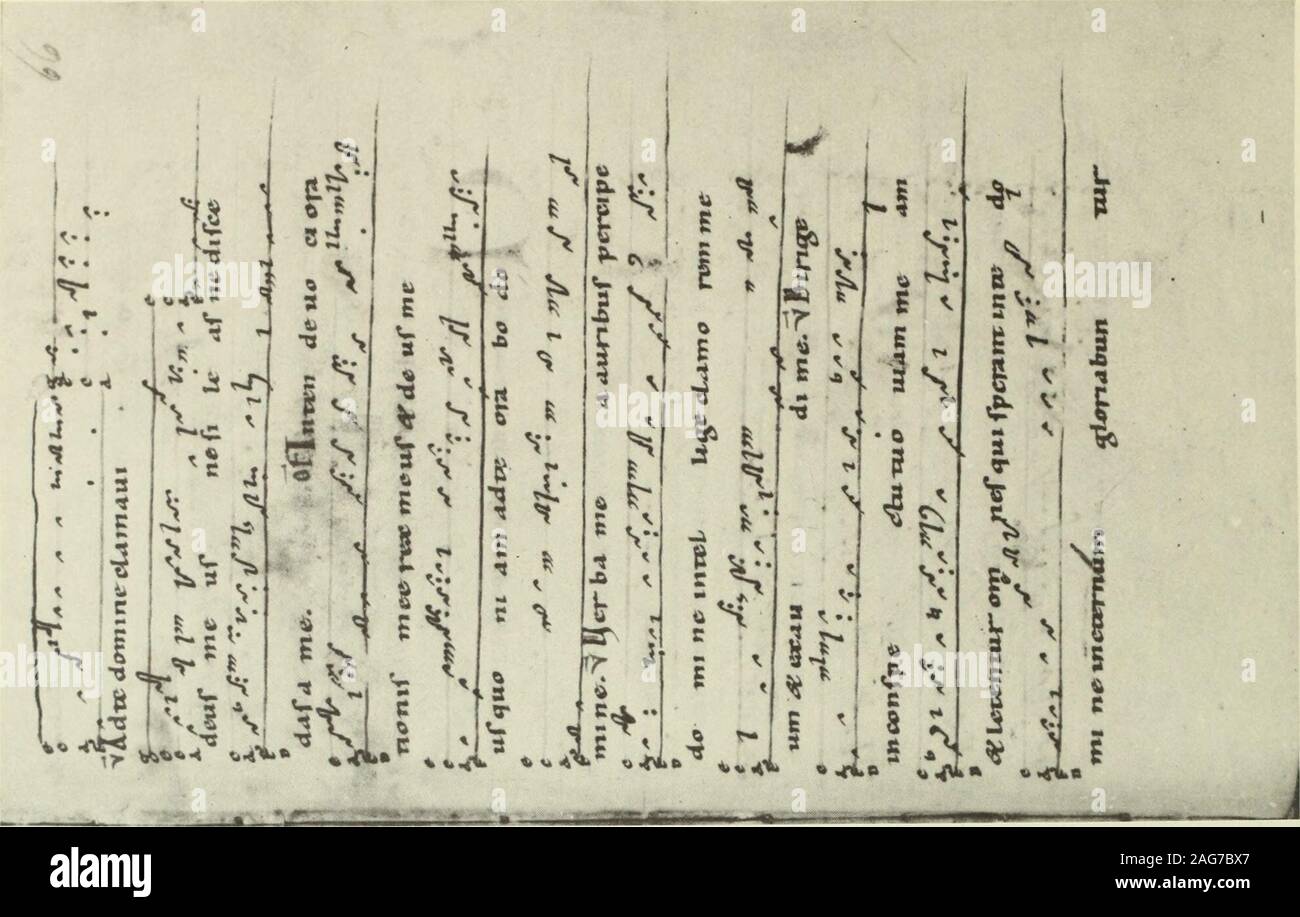 66
℣ Ad te domine clamaui
deus me us ne si le as ne disce
das a me. OFF Inten de uo ci ora
nonis mee rex meus & de us me
us quo ni am ad te ora bo do
mine. ℣ Uer ba me a auribus percipe
do mi ne intel lige clamo rem me
um & exau di me. ℣ Dirige
in conspe ctu tuo uiam me am
& letentur omnes qui sperant in te do
mi ne in eternum gloriabun tur
alamy
Image ID: 2AG7BX7
www.alamy.com